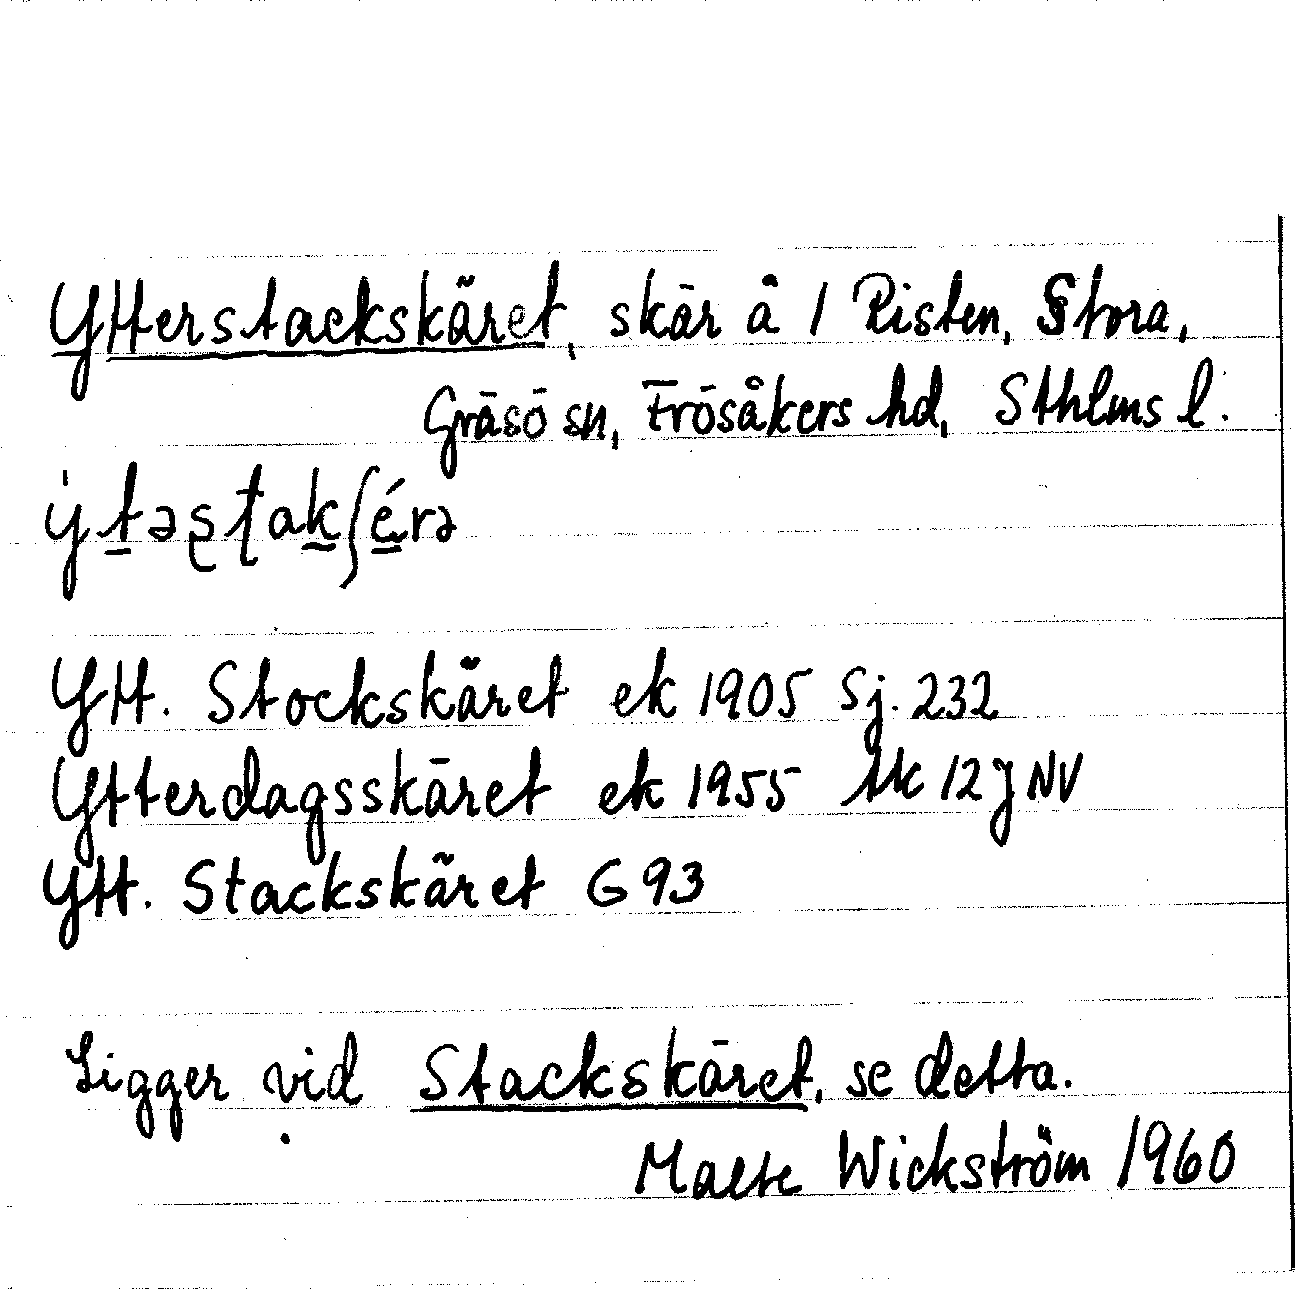 Ytterstackskäret, skär å 1 Risten, Stora,
Gräsö sn, Frösåkers hd, Sthlms l.
ẏt̲əʂʈak̲ʃé̲rə
Ytt. Stockskäret ek 1905 Sj. 232
Ytterdagsskäret ek 1955 tk 12J NV
Ytt. Stackskäret G 93
Ligger vid Stackskäret, se detta.
Malte Wickström 1960